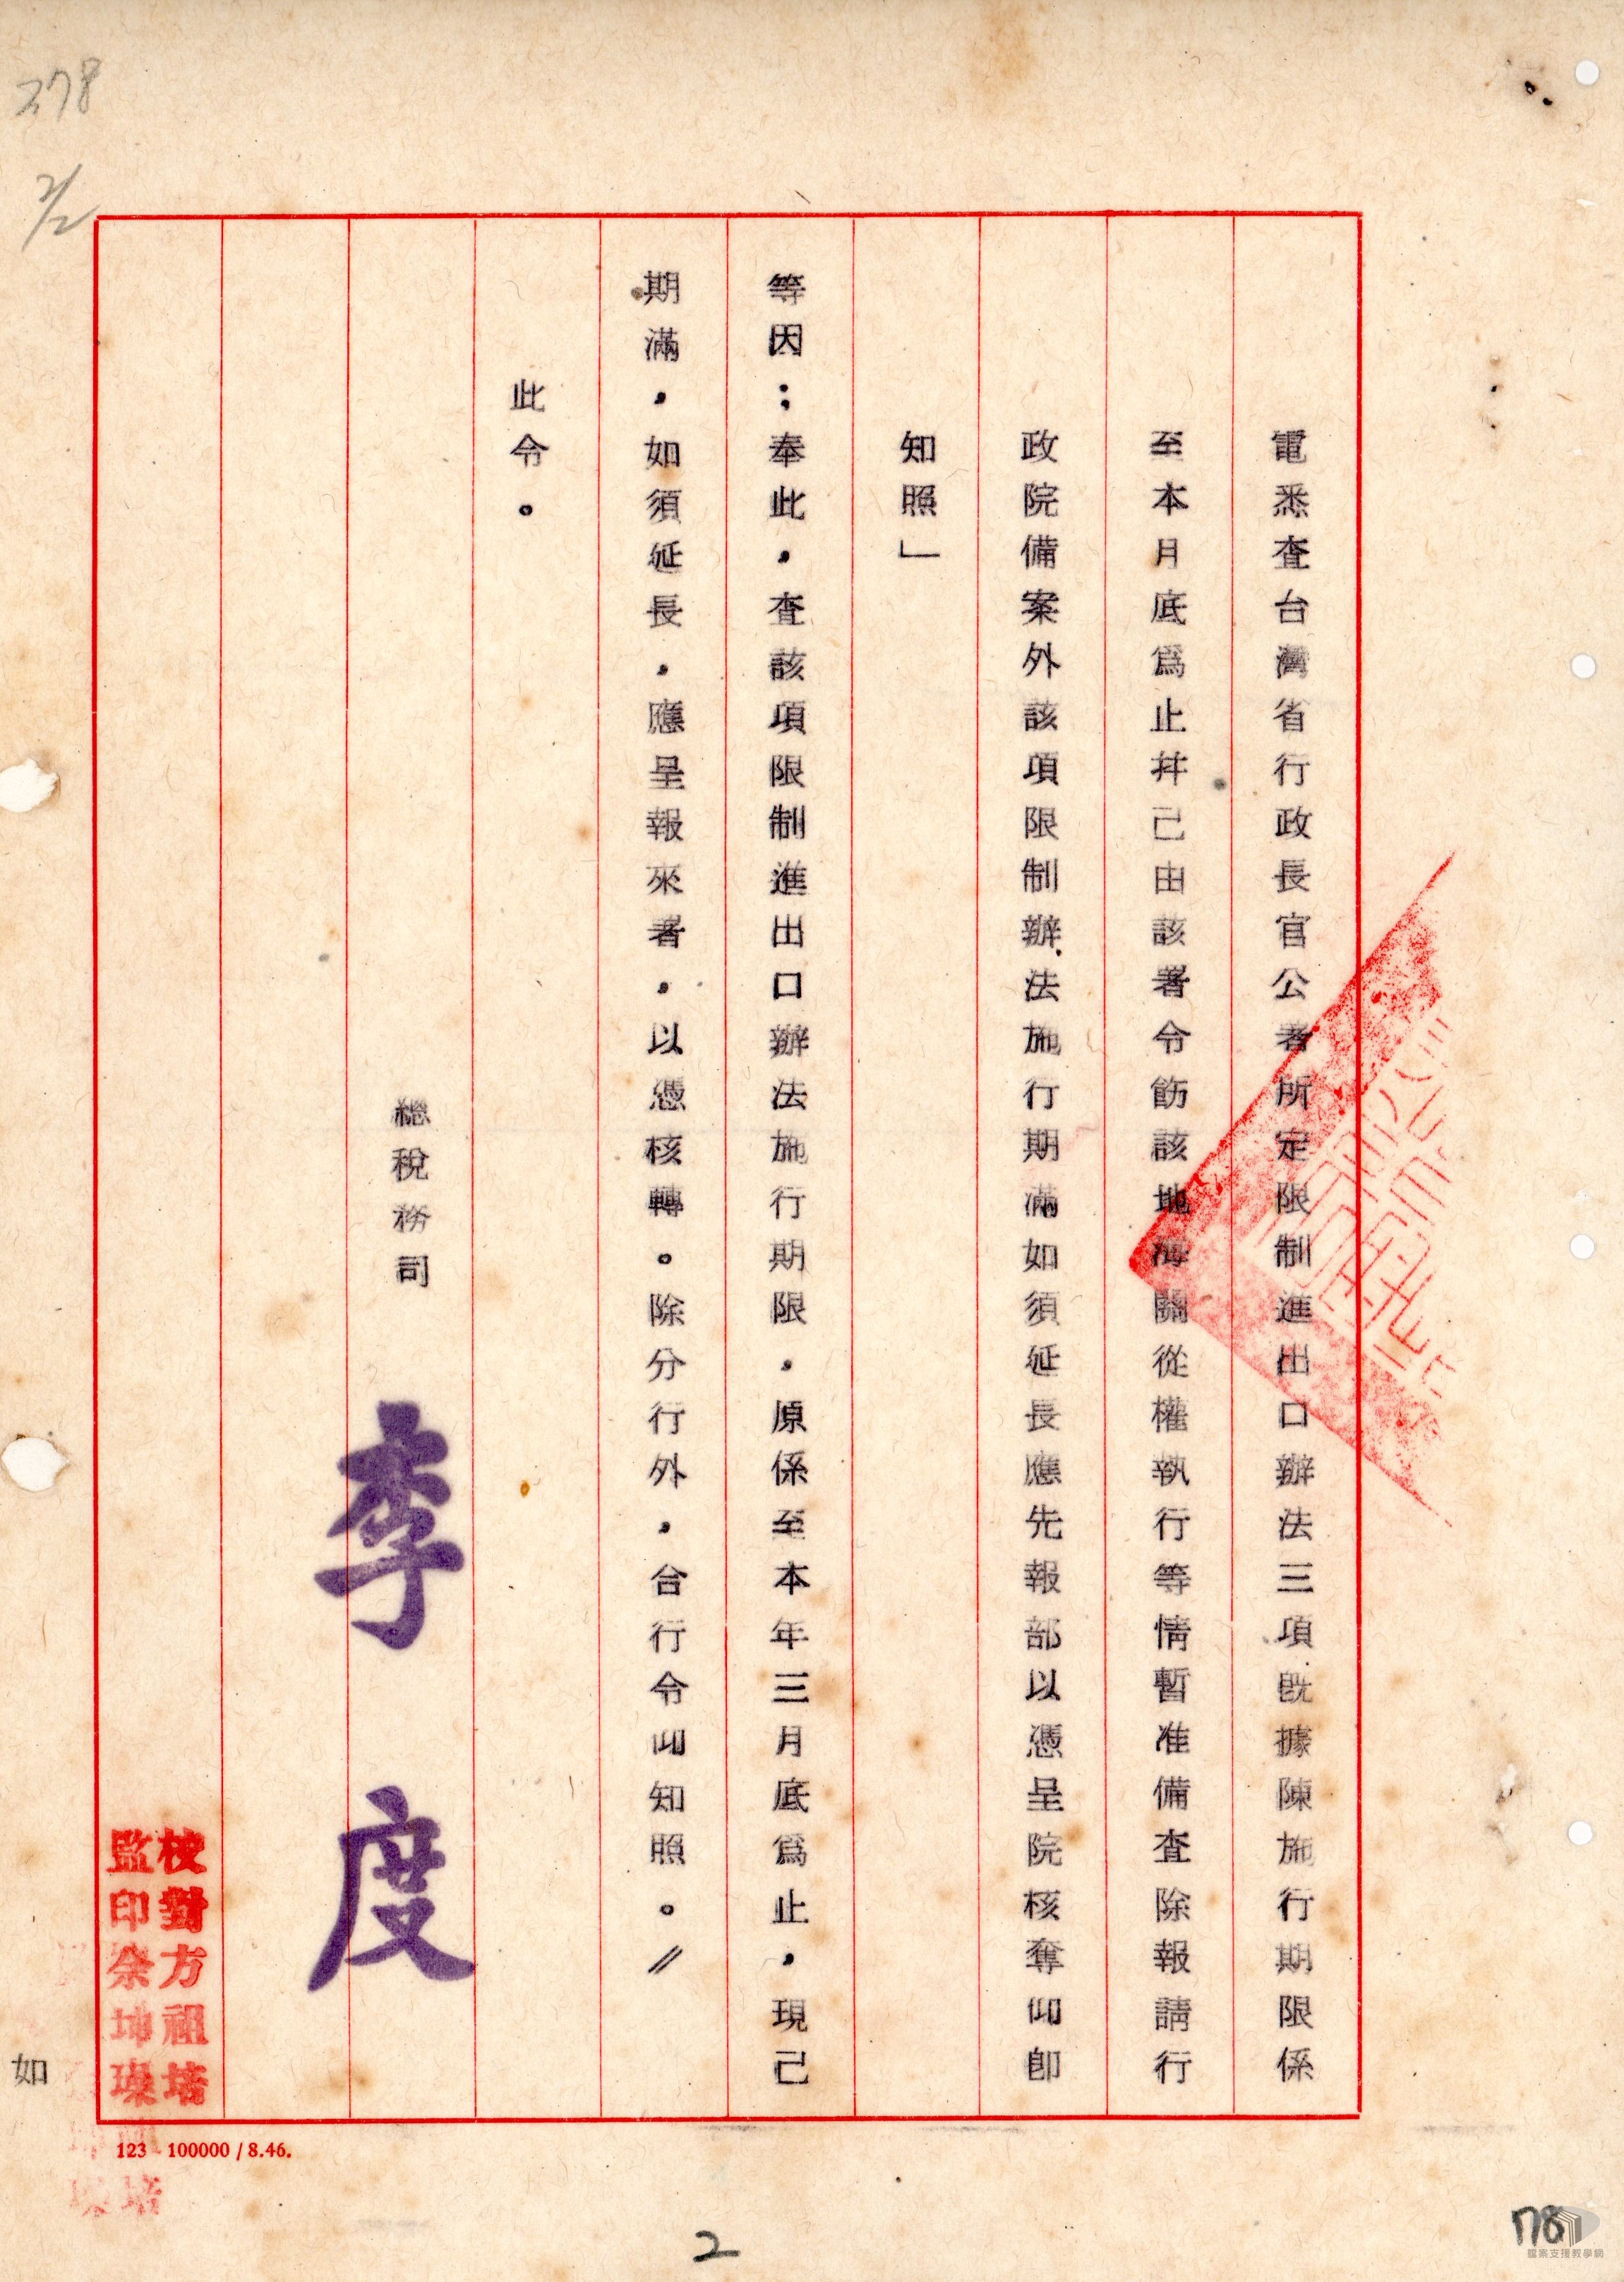 378
2/2
電悉查台灣省行政長官公署所定限制進出口辦法三項既據陳施行期限係
至本月底為止幷己由該署令飭該地海關從權執行等情暫准備查除報請行
政院備案外該項限制辦法施行期滿如須延長應先報部以憑呈院核奪仰卽
知照」
等因；奉此，查該項限制進出口辦法施行期限，原係至本年三月底為止，現己
期滿，如須延長，應呈報來署，以憑核轉。除分行外，合行令仰知照。〃
此令。
總稅務司
李度
校對方祖培
監印余坤璪
如
123 - 100000 / 8.46.
2
178
檔案支援教學網